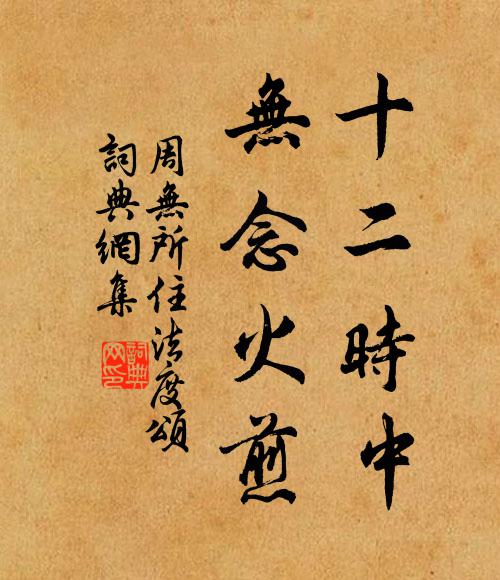 十二時中
無念火煎
周無所住法度頌
詞典網集
詞典網印